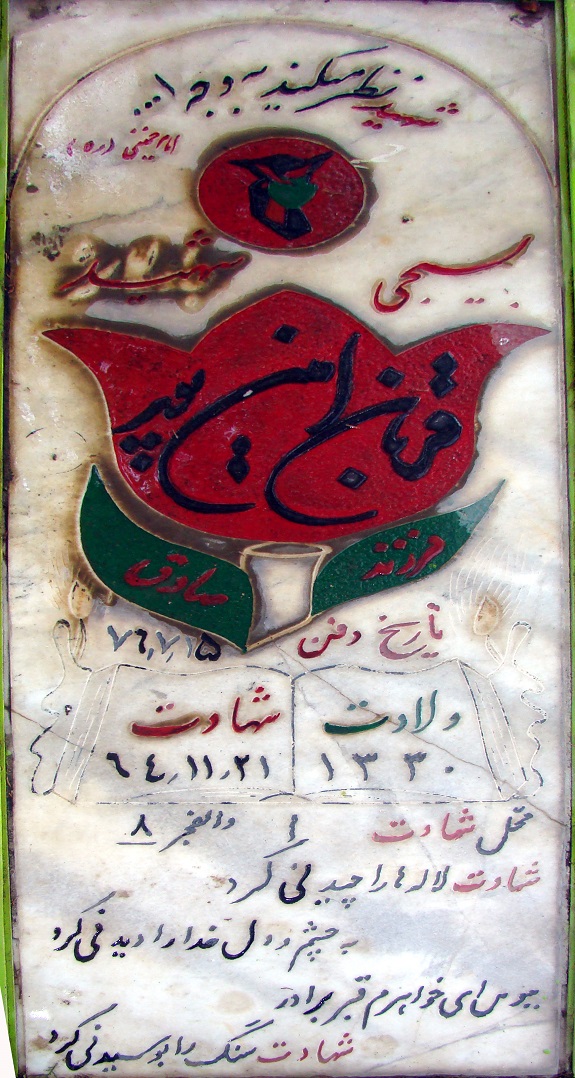 شهید نظر میکند به وجه ا...
امام خمینی (ره)
بسیجی شهید
قربان امین پور
فرزند صادق
تاریخ دفن ۷۶٫۷٫۱۵
ولادت شهادت
۱۳۳۰ ۶۴٫۱۱٫۲۱
محل شهادت والفجر ۸
شهادت لاله ها را چیدنی کرد
به چشم دل خدا را دیدنی کرد
ببوس ای خواهرم قبر برادر
شهادت سنگ را بوسیدنی کرد